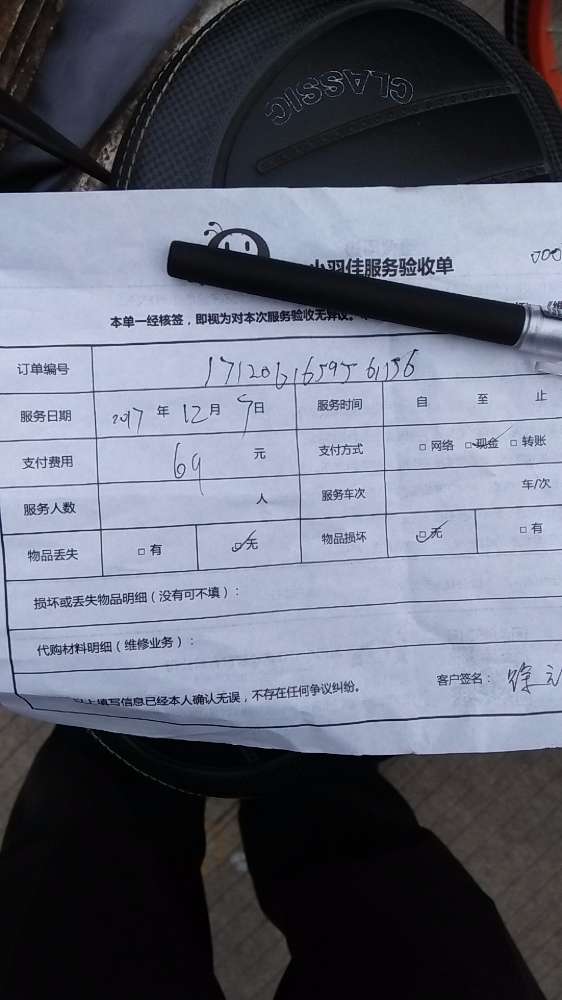 CLASSIC
小羽佳服务验收单
000
本单一经核签，即视为对本次服务验收无异议。
订单编号 171206165956156
服务日期 2017 年 12 月 7 日 服务时间 自 至 止
支付费用 69 元 支付方式 □ 网络 □ 现金 □ 转账
服务人数 人 服务车次 车/次
物品丢失 □ 有 □ 无 物品损坏 □ 无 □ 有
损坏或丢失物品明细（没有可不填）：
代购材料明细（维修业务）：
以上填写信息已经本人确认无误，不存在任何争议纠纷。 客户签名： 徐